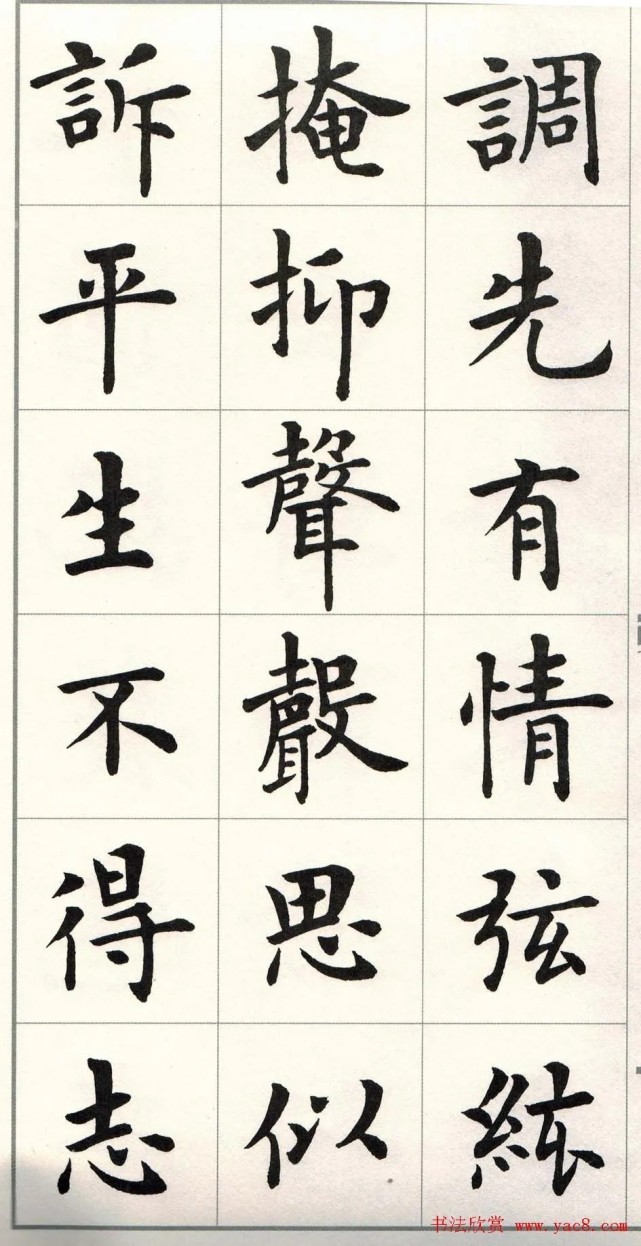 調先有情弦絃
掩抑聲聲思似
訴平生不得志
书法欣赏 www.yac8.com